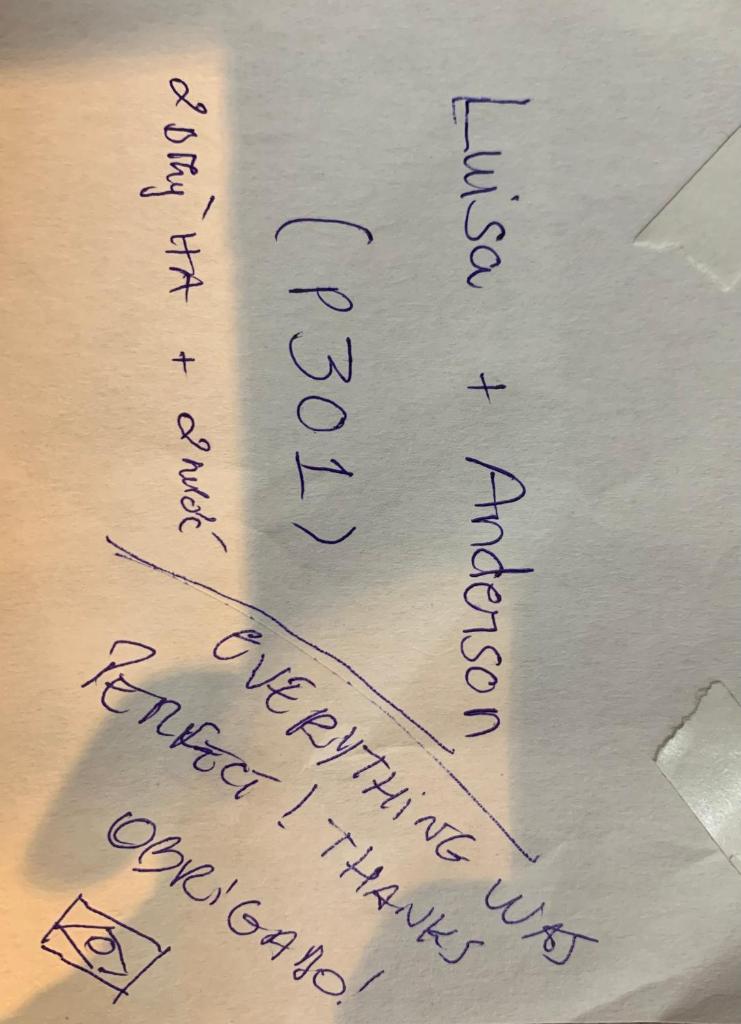 Luisa + Anderson
(P301)
2 BMỳ HA + 2 nước
EVERYTHING WAS
PERFECT! THANKS
OBRIGADO!